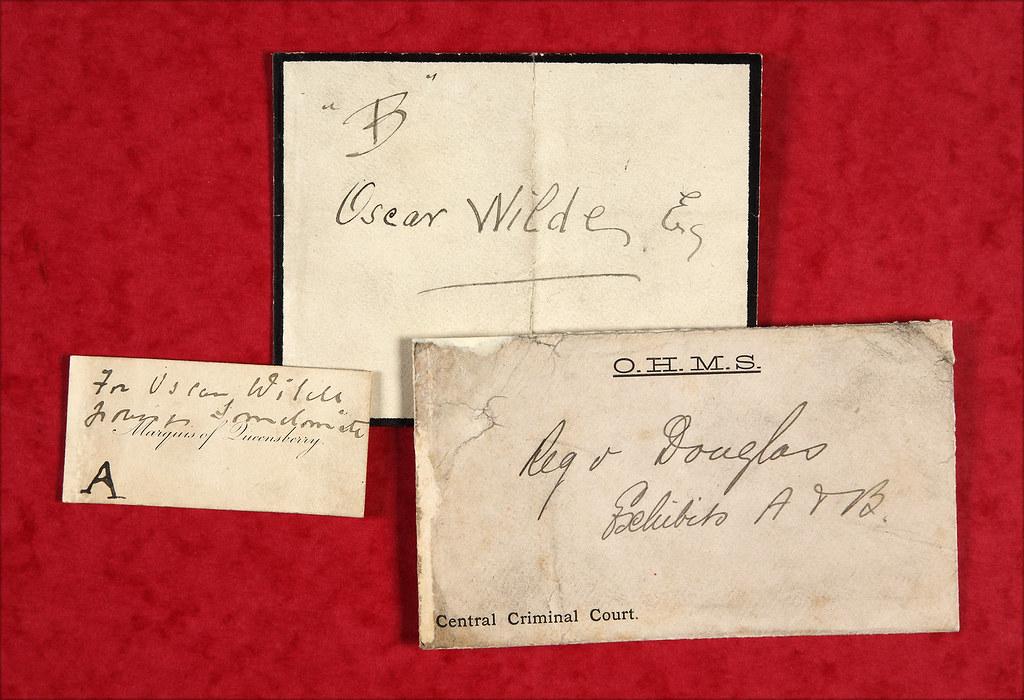 "B"
Oscar Wilde, Esq
For Oscar Wilde
posing Somdomite
Marquis of Queensberry.
A
O.H.M.S.
Reg v Douglas
Exhibits A & B.
Central Criminal Court.